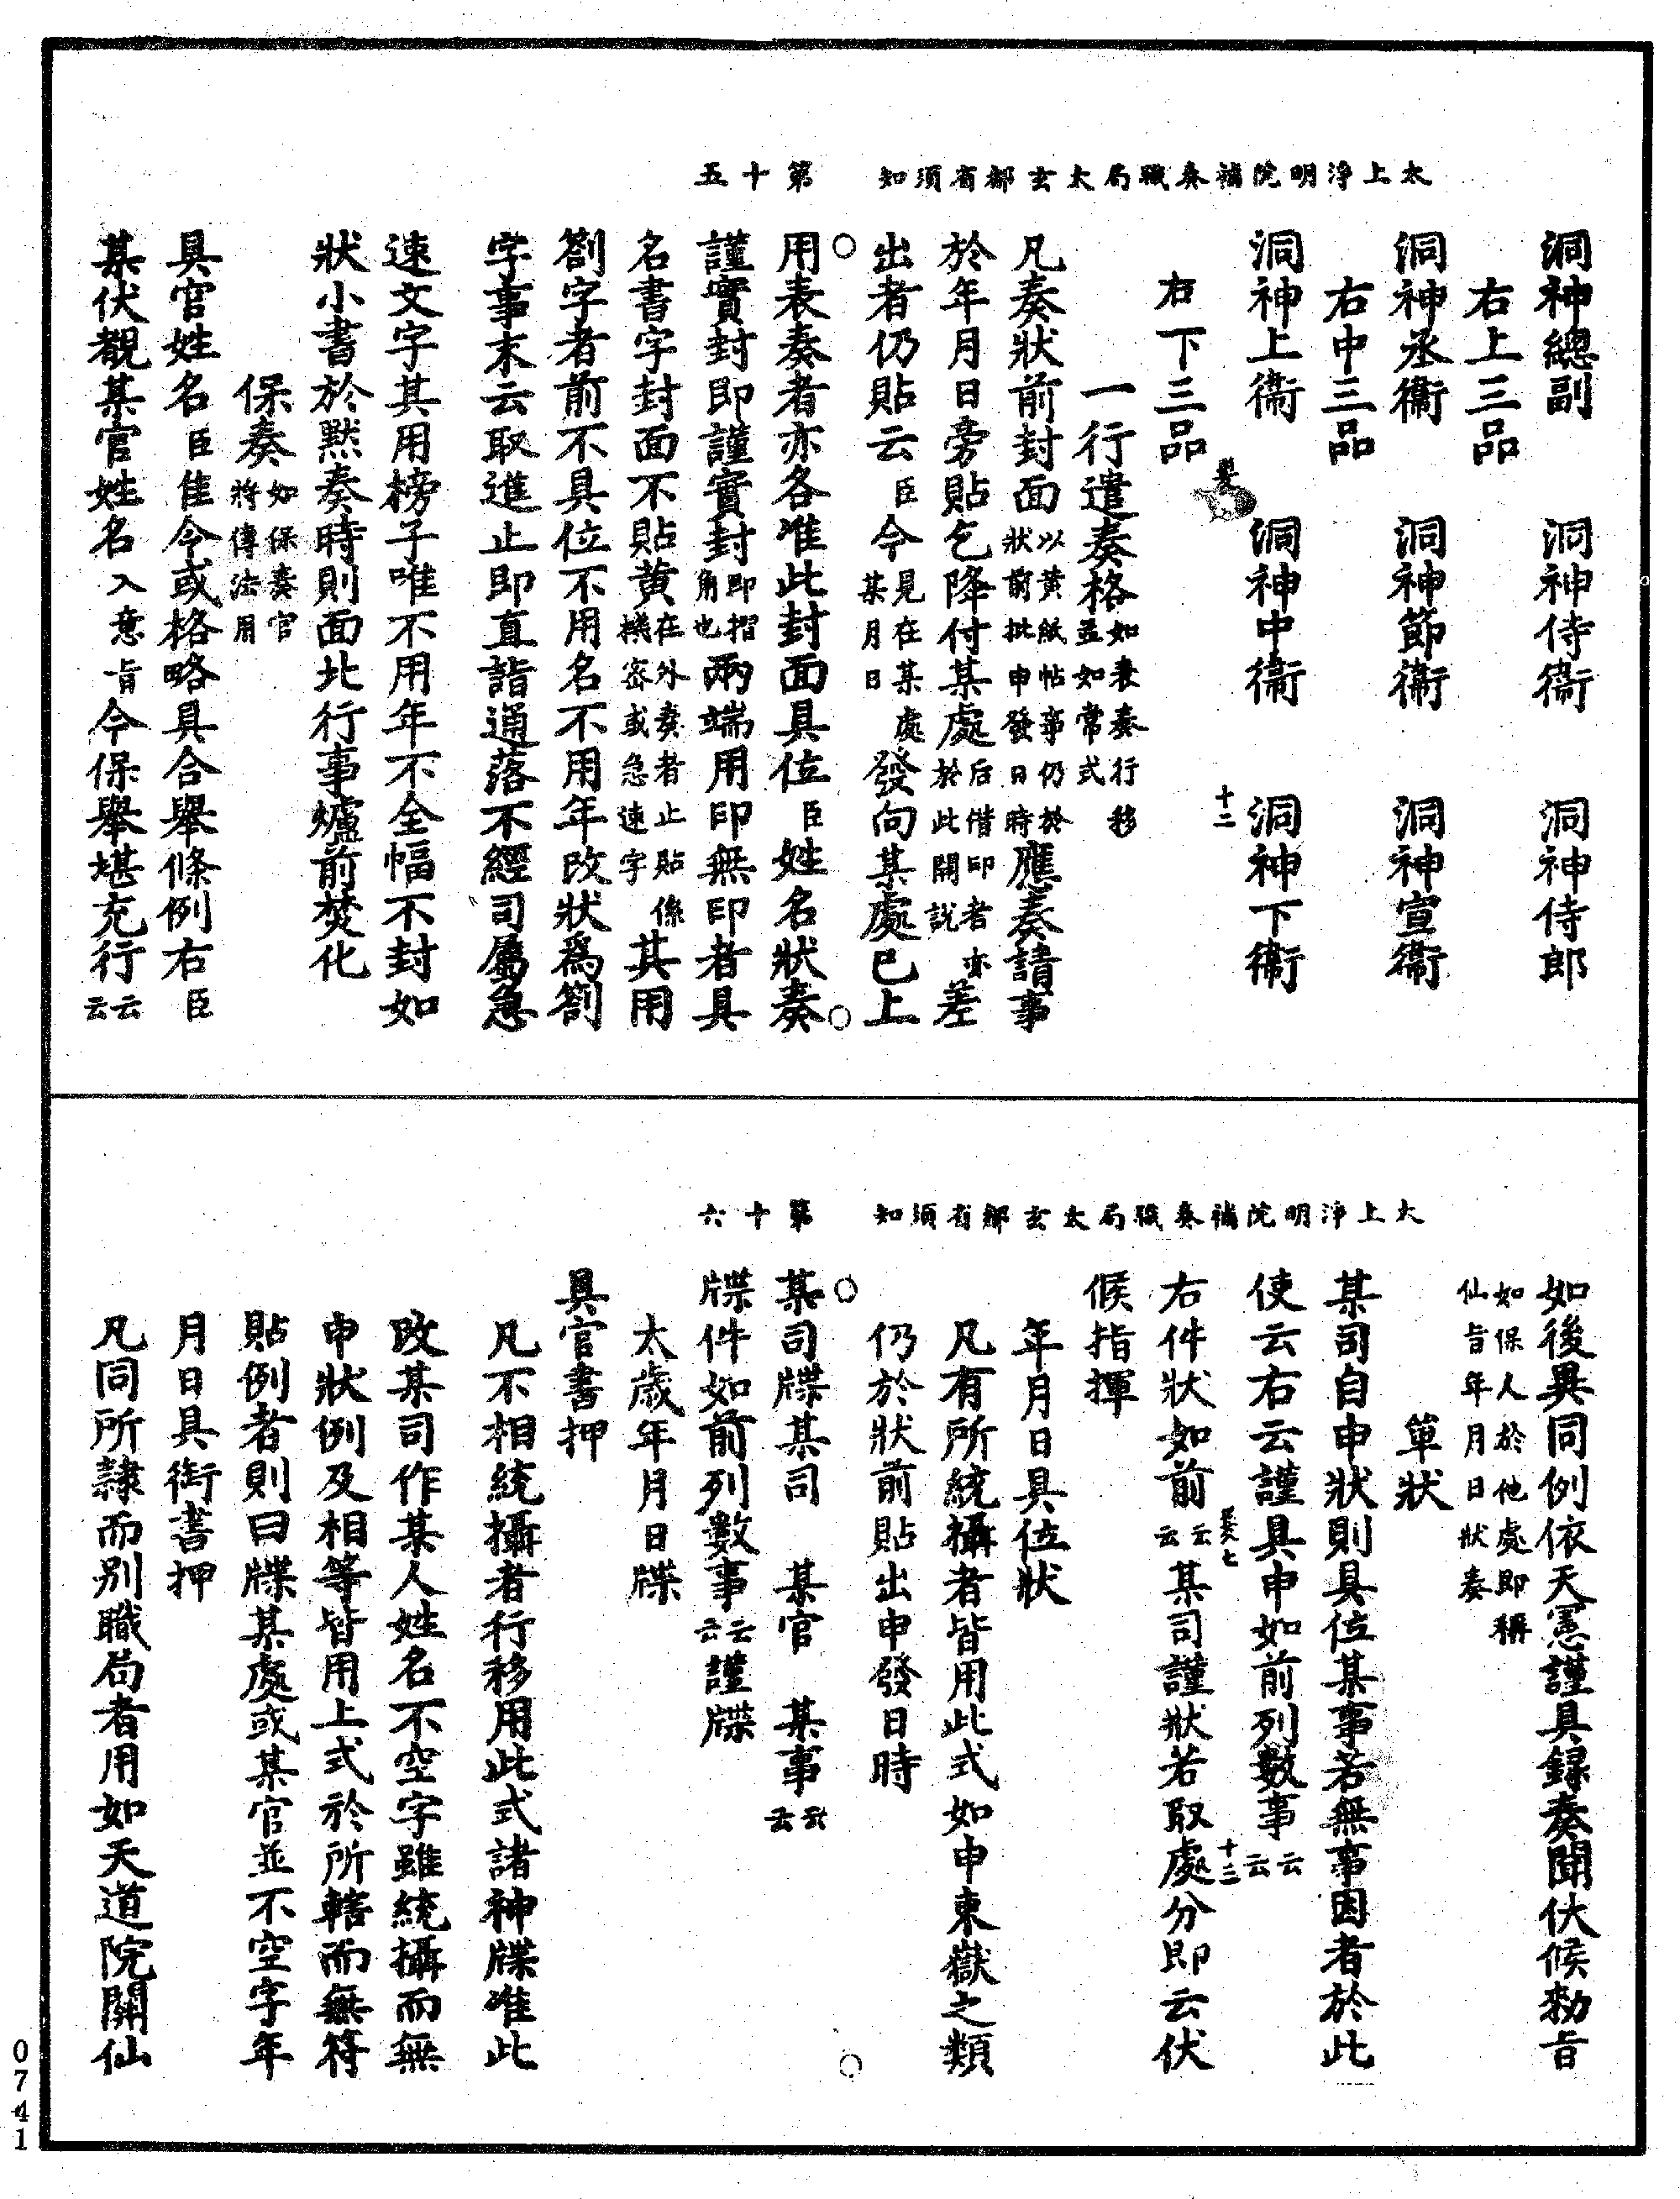 太上淨明院補奏職局太玄都省須知　第十五
洞神總副　洞神侍衞　洞神侍郎
右上三品
洞神丞衞　洞神節衞　洞神宣衞
右中三品
洞神上衞　洞神中衞　洞神下衞
十二
右下三品
一行遣奏格如表奏行移並如常式
凡奏狀前封面以黃紙帖事仍於狀前批申發日時應奏請事
於年月日旁貼乞降付某處后借印者亦於此開說差
出者仍貼云臣今見在某處某月日發向某處已上
用表奏者亦各准此封面具位臣姓名狀奏
謹實封即謹實封即摺角也兩端用印無印者具
名書字封面不貼黃在外奏者止貼係機密或急速字其用
劄字者前不具位不用名不用年改狀爲劄
字事末云取進止即直詣通落不經司屬急
速文字其用榜子唯不用年不全幅不封如
狀小書於黙奏時則面北行事爐前焚化
保奏如保奏官將傳法用
具官姓名臣隹今或格略具合舉條例右臣
某伏覩某官姓名入意旨今保舉堪充行云云
太上淨明院補奏職局太玄都省須知　第十六
如後異同例依天憲謹具録奏聞伏候勑旨
如保人於他處即稱仙旨年月日狀奏
單狀
某司自申狀則具位某事若無事因者於此
使云右云謹具申如前列數事云云
十三
右件狀如前云云某司謹狀若取處分即云伏
候指揮
年月日具位狀
凡有所統攝者皆用此式如申東嶽之類
仍於狀前貼出申發日時
某司牒某司　某官　某事云云
牒件如前列數事云云謹牒
太歲年月日牒
具官書押
凡不相統攝者行移用此式諸神牒准此
改某司作某人姓名不空字雖統攝而無
申狀例及相等皆用上式於所轄而無符
貼例者則曰牒某處或某官並不空字年
月日具銜書押
凡同所隸而別職局者用如天道院關仙
0741